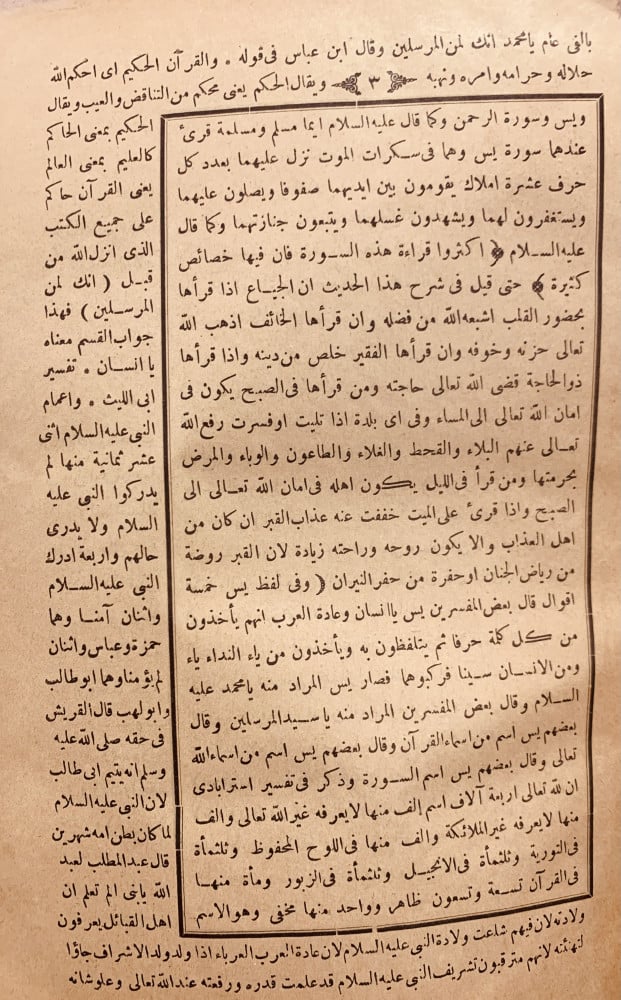 بالفى عام يا محمد انك لمن المرسلين وقال ابن عباس فى قوله ۰ والقرآن الحكيم اى احكم الله
حلاله وحرامه وامره ونهيه ٣ ويقال الحكم يعنى محكم من التناقض والعيب ويقال
الحكيم بمعنى الحاكم
كالعليم بمعنى العالم
يعنى القرآن حاكم
على جميع الكتب
الذى انزل الله من
قبل ( انك لمن
المرسلين ) فهذا
جواب القسم معناه
يا انسان ۰ تفسير
ابى الليث ۰ واعمام
النبى عليه السلام اثنى
عشر ثمانية منها لم
يدركوا النبى عليه
السلام ولا يدرى
حالهم واربعة ادرك
النبى عليه السلام
واثنان آمنا وهما
حمزة وعباس واثنان
لم يؤمنا وهما ابو طالب
وابو لهب قال القريش
فى حقه صلى الله عليه
وسلم انه يتيم ابى طالب
لان النبى عليه السلام
لما كان ببطن امه شهرين
قال عبد المطلب لعبد
الله يا بنى الم تعلم ان
اهل القبائل يعرفون
ويس وسورة الرحمن وكما قال عليه السلام ايما مسلم ومسلمة قرئ
عندهما سورة يس وهما فى سكرات الموت نزل عليهما بعدد كل
حرف عشرة املاك يقومون بين ايديهما صفوفا ويصلون عليهما
ويستغفرون لهما ويشهدون غسلهما ويتبعون جنازتهما وكما قال
عليه السلام ﴿ اكثروا قراءة هذه السورة فان فيها خصائص
كثيرة ﴾ حتى قيل فى شرح هذا الحديث ان الجياع اذا قرأها
بحضور القلب اشبعه الله من فضله وان قرأها الخائف اذهب الله
تعالى حزنه وخوفه وان قرأها الفقير خلص من دينه واذا قرأها
ذو الحاجة قضى الله تعالى حاجته ومن قرأها فى الصبح يكون فى
امان الله تعالى الى المساء وفى اى بلدة اذا تليت او فسرت رفع الله
تعالى عنهم البلاء والقحط والغلاء والطاعون والوباء والمرض
بحرمتها ومن قرأ فى الليل يكون اهله فى امان الله تعالى الى
الصبح واذا قرئ على الميت خففت عنه عذاب القبر ان كان من
اهل العذاب والا يكون روحه وراحته زيادة لان القبر روضة
من رياض الجنان او حفرة من حفر النيران ( وفى لفظ يس خمسة
اقوال قال بعض المفسرين يس يا انسان وعادة العرب انهم يأخذون
من كل كلمة حرفا ثم يتلفظون به ويأخذون من ياء النداء ياء
ومن الانسان سينا فركبوهما فصار يس المراد منه يا محمد عليه
السلام وقال بعض المفسرين المراد منه يا سيد المرسلين وقال
بعضهم يس اسم من اسماء القرآن وقال بعضهم يس اسم من اسماء الله
تعالى وقال بعضهم يس اسم السورة وذكر فى تفسير استرابادى
ان لله تعالى اربعة آلاف اسم الف منها لا يعرفه غير الله تعالى والف
منها لا يعرفه غير الملائكة والف منها فى اللوح المحفوظ وثلثمأة
فى التورية وثلثمأة فى الانجيل وثلثمأة فى الزبور ومأة منها
فى القرآن تسعة وتسعون ظاهر وواحد منها مخفى وهو الاسم
ولادته لان فيهم شاعت ولادة النبى عليه السلام لان عادة العرب العرباء اذا ولد ولد الاشراف جاؤا
لتهنئته لانهم مترقبون تشريف النبى عليه السلام قد علمت قدره ورفعته عند الله تعالى وعلو شانه